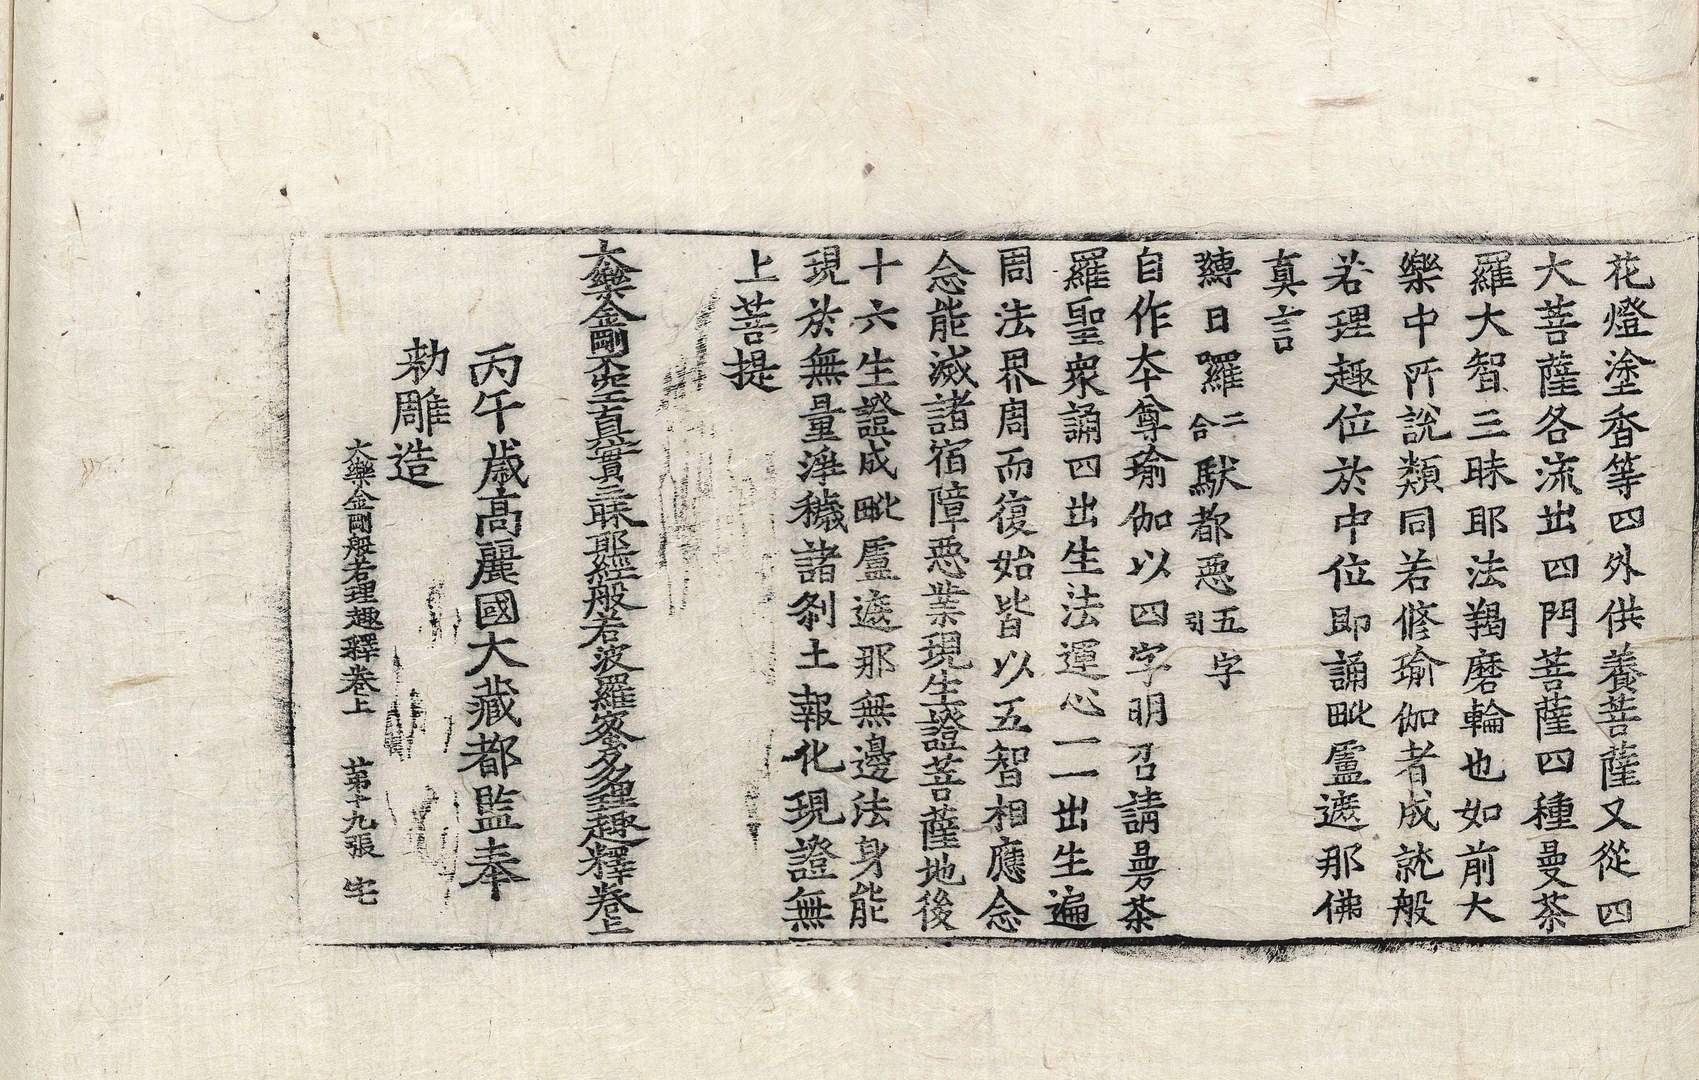 花燈塗香等四外供養菩薩又從四
大菩薩各流出四門菩薩四種曼荼
羅大智三昧耶法羯磨輪也如前大
樂中所說類同若修瑜伽者成就般
若理趣位於中位即誦毗盧遮那佛
真言
縛日囉二合馱都惡五引字
自作本尊瑜伽以四字明召請曼荼
羅聖衆誦四出生法運心一一出生遍
周法界周而復始皆以五智相應念
念能滅諸宿障惡業現生證菩薩地後
十六生證成毗盧遮那無邊法身能
現於無量淨穢諸刹土報化現證無
上菩提
大樂金剛不空真實三昧耶經般若波羅蜜多理趣釋卷上
丙午歲高麗國大藏都監奉
勅雕造
大樂金剛般若理趣釋卷上 第十九張 宅